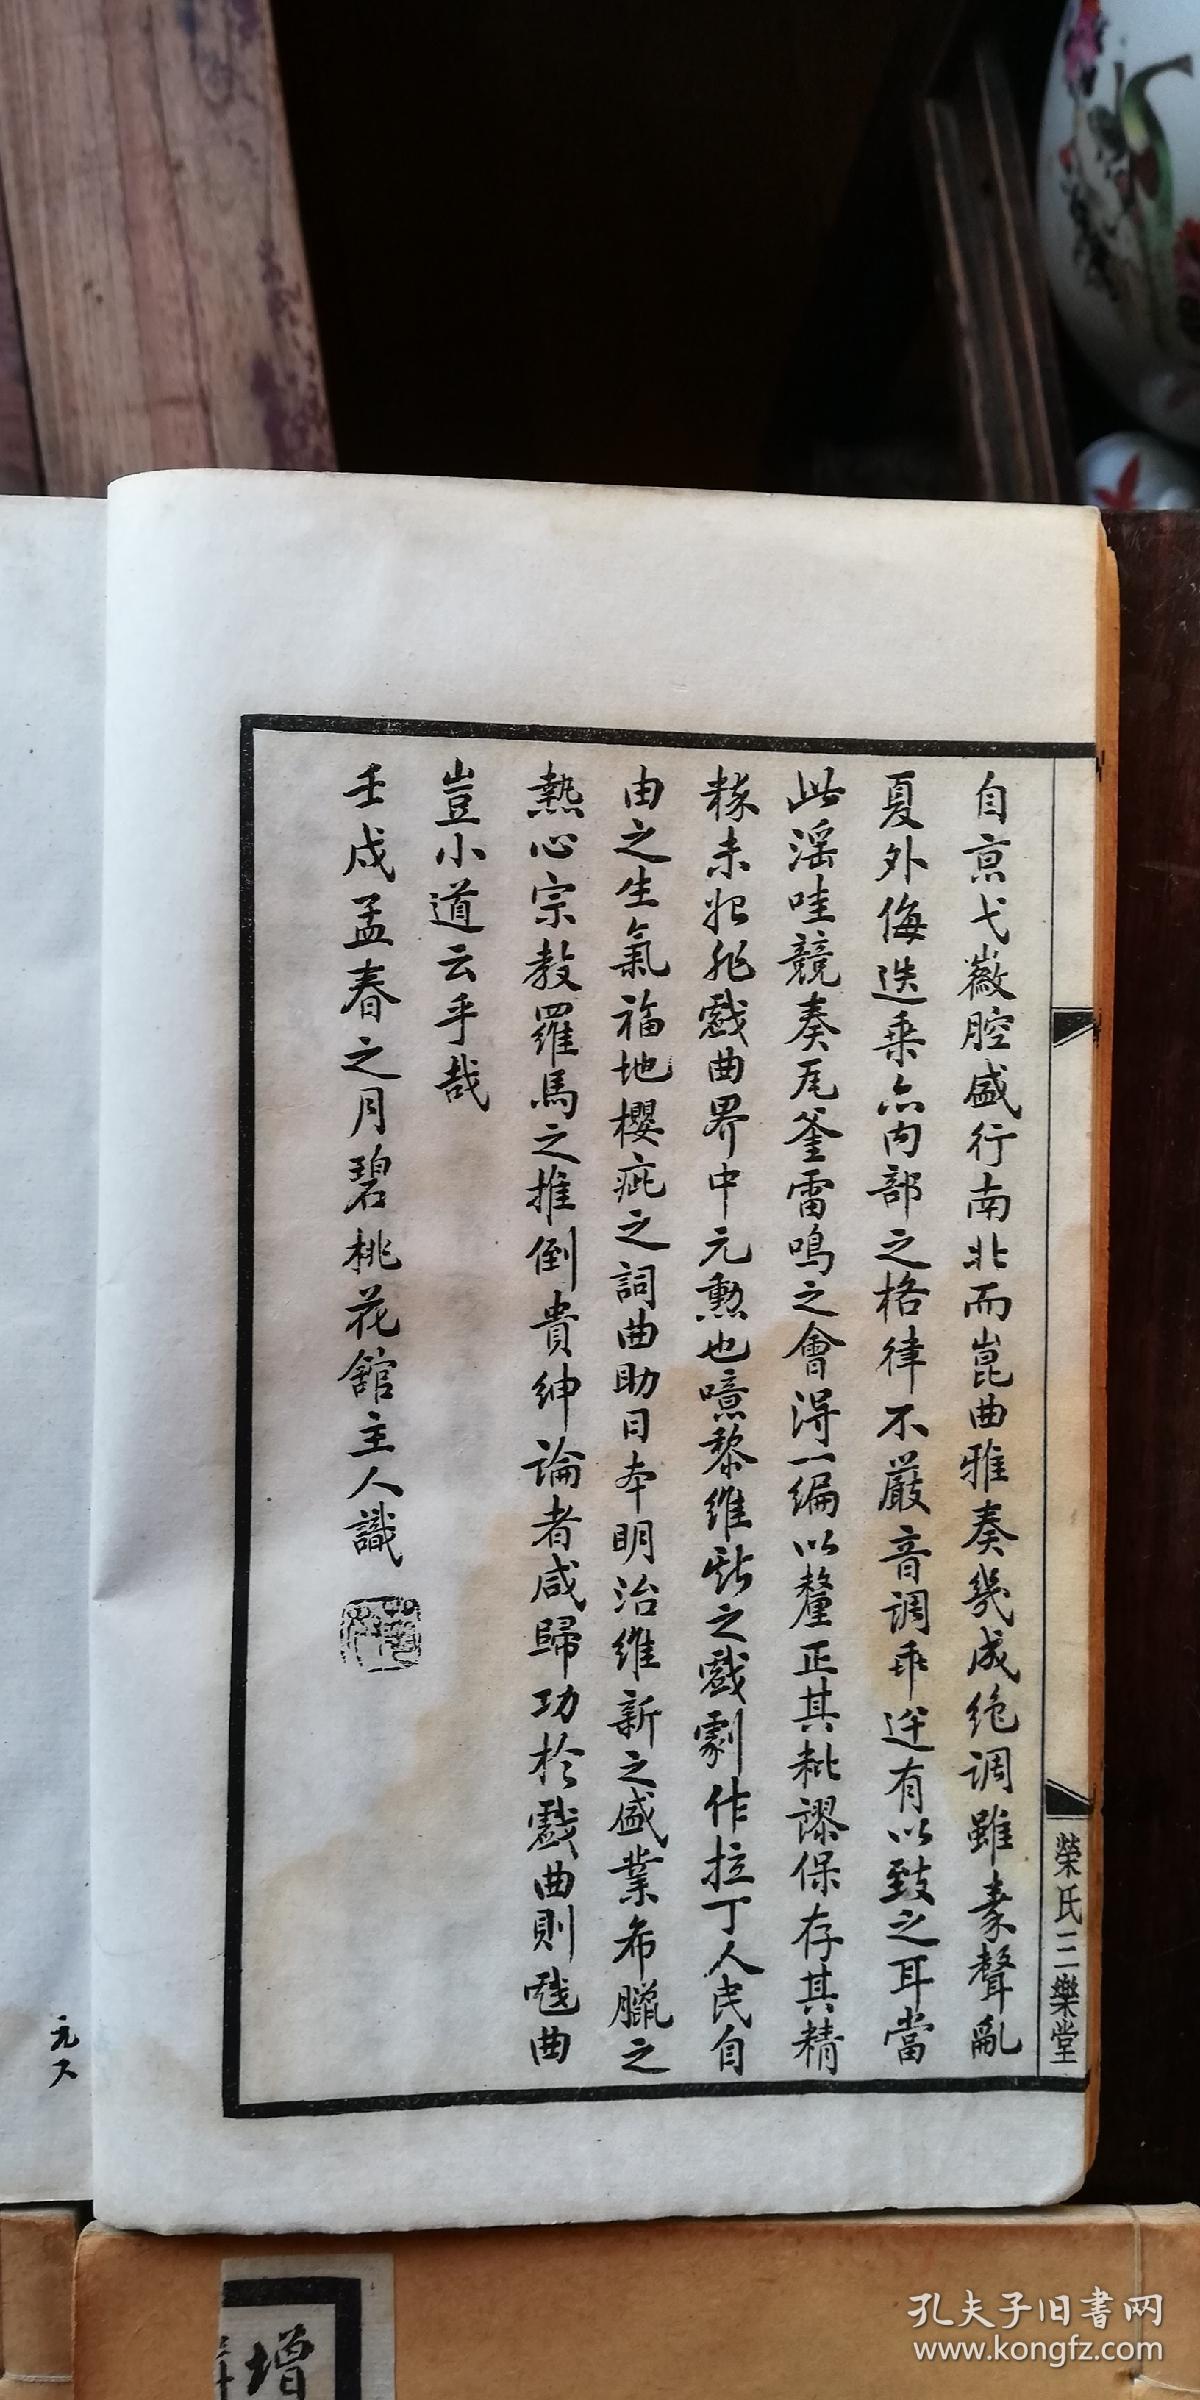 自京弋黴腔盛行南北而崑曲雅奏幾成絶调雖秦聲亂
夏外侮迭乗亦内部之格律不嚴音调乖迕有以致之耳當
此淫哇競奏瓦釜雷鳴之會得一编以釐正其粃謬保存其精
粹未始非戲曲界中元勲也噫黎維斯之戲劇作拉丁人民自
由之生氣福地櫻痴之詞曲助日本明治維新之盛業希臘之
熱心宗教羅馬之推倒貴紳論者咸歸功於戲曲則戲曲
豈小道云乎哉
壬戌孟春之月碧桃花館主人識
榮氏三樂堂
增
孔夫子旧书网
www.kongfz.com